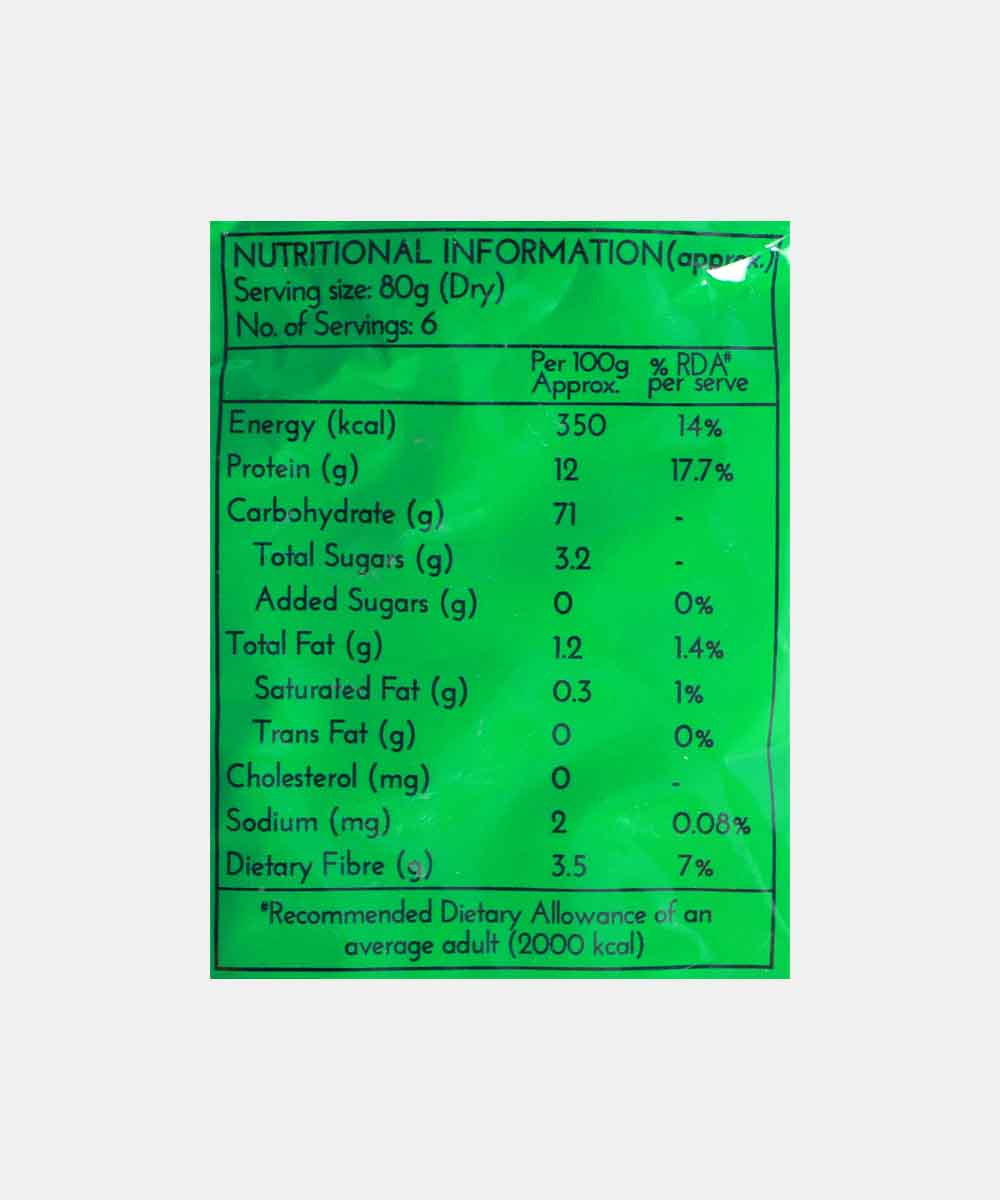 NUTRITIONAL INFORMATION (approx.)
Serving size: 80g (Dry)
No. of Servings: 6
Per 100g Approx. % RDA# per serve
Energy (kcal) 350 14%
Protein (g) 12 17.7%
Carbohydrate (g) 71 -
Total Sugars (g) 3.2 -
Added Sugars (g) 0 0%
Total Fat (g) 1.2 1.4%
Saturated Fat (g) 0.3 1%
Trans Fat (g) 0 0%
Cholesterol (mg) 0 -
Sodium (mg) 2 0.08%
Dietary Fibre (g) 3.5 7%
#Recommended Dietary Allowance of an
average adult (2000 kcal)